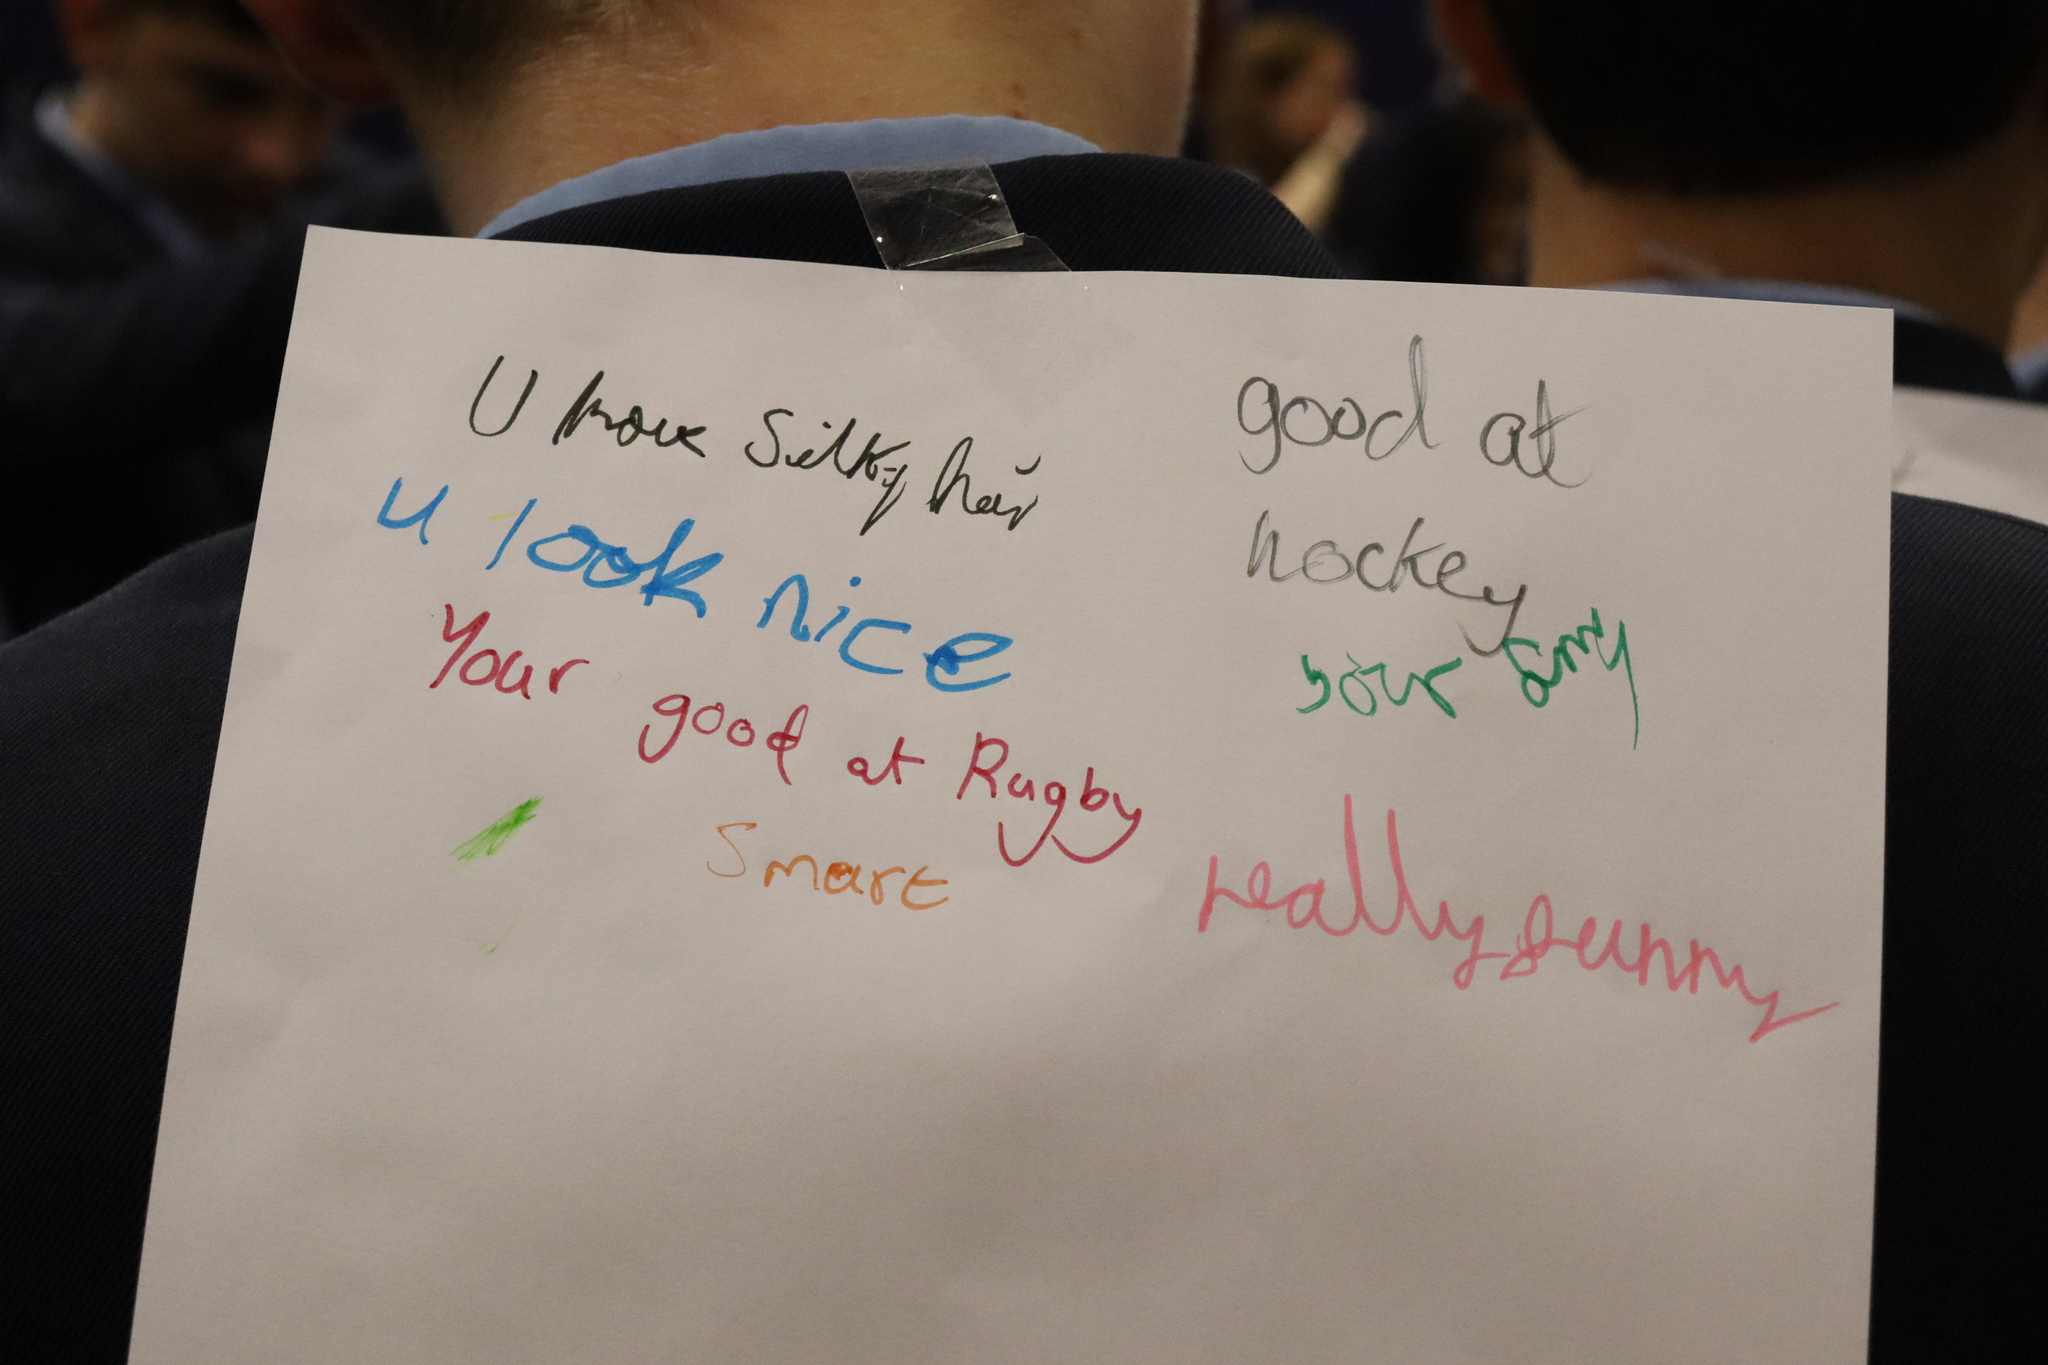 U have silky hair
u look nice
Your good at Rugby
smart
good at
hockey
your
really funny